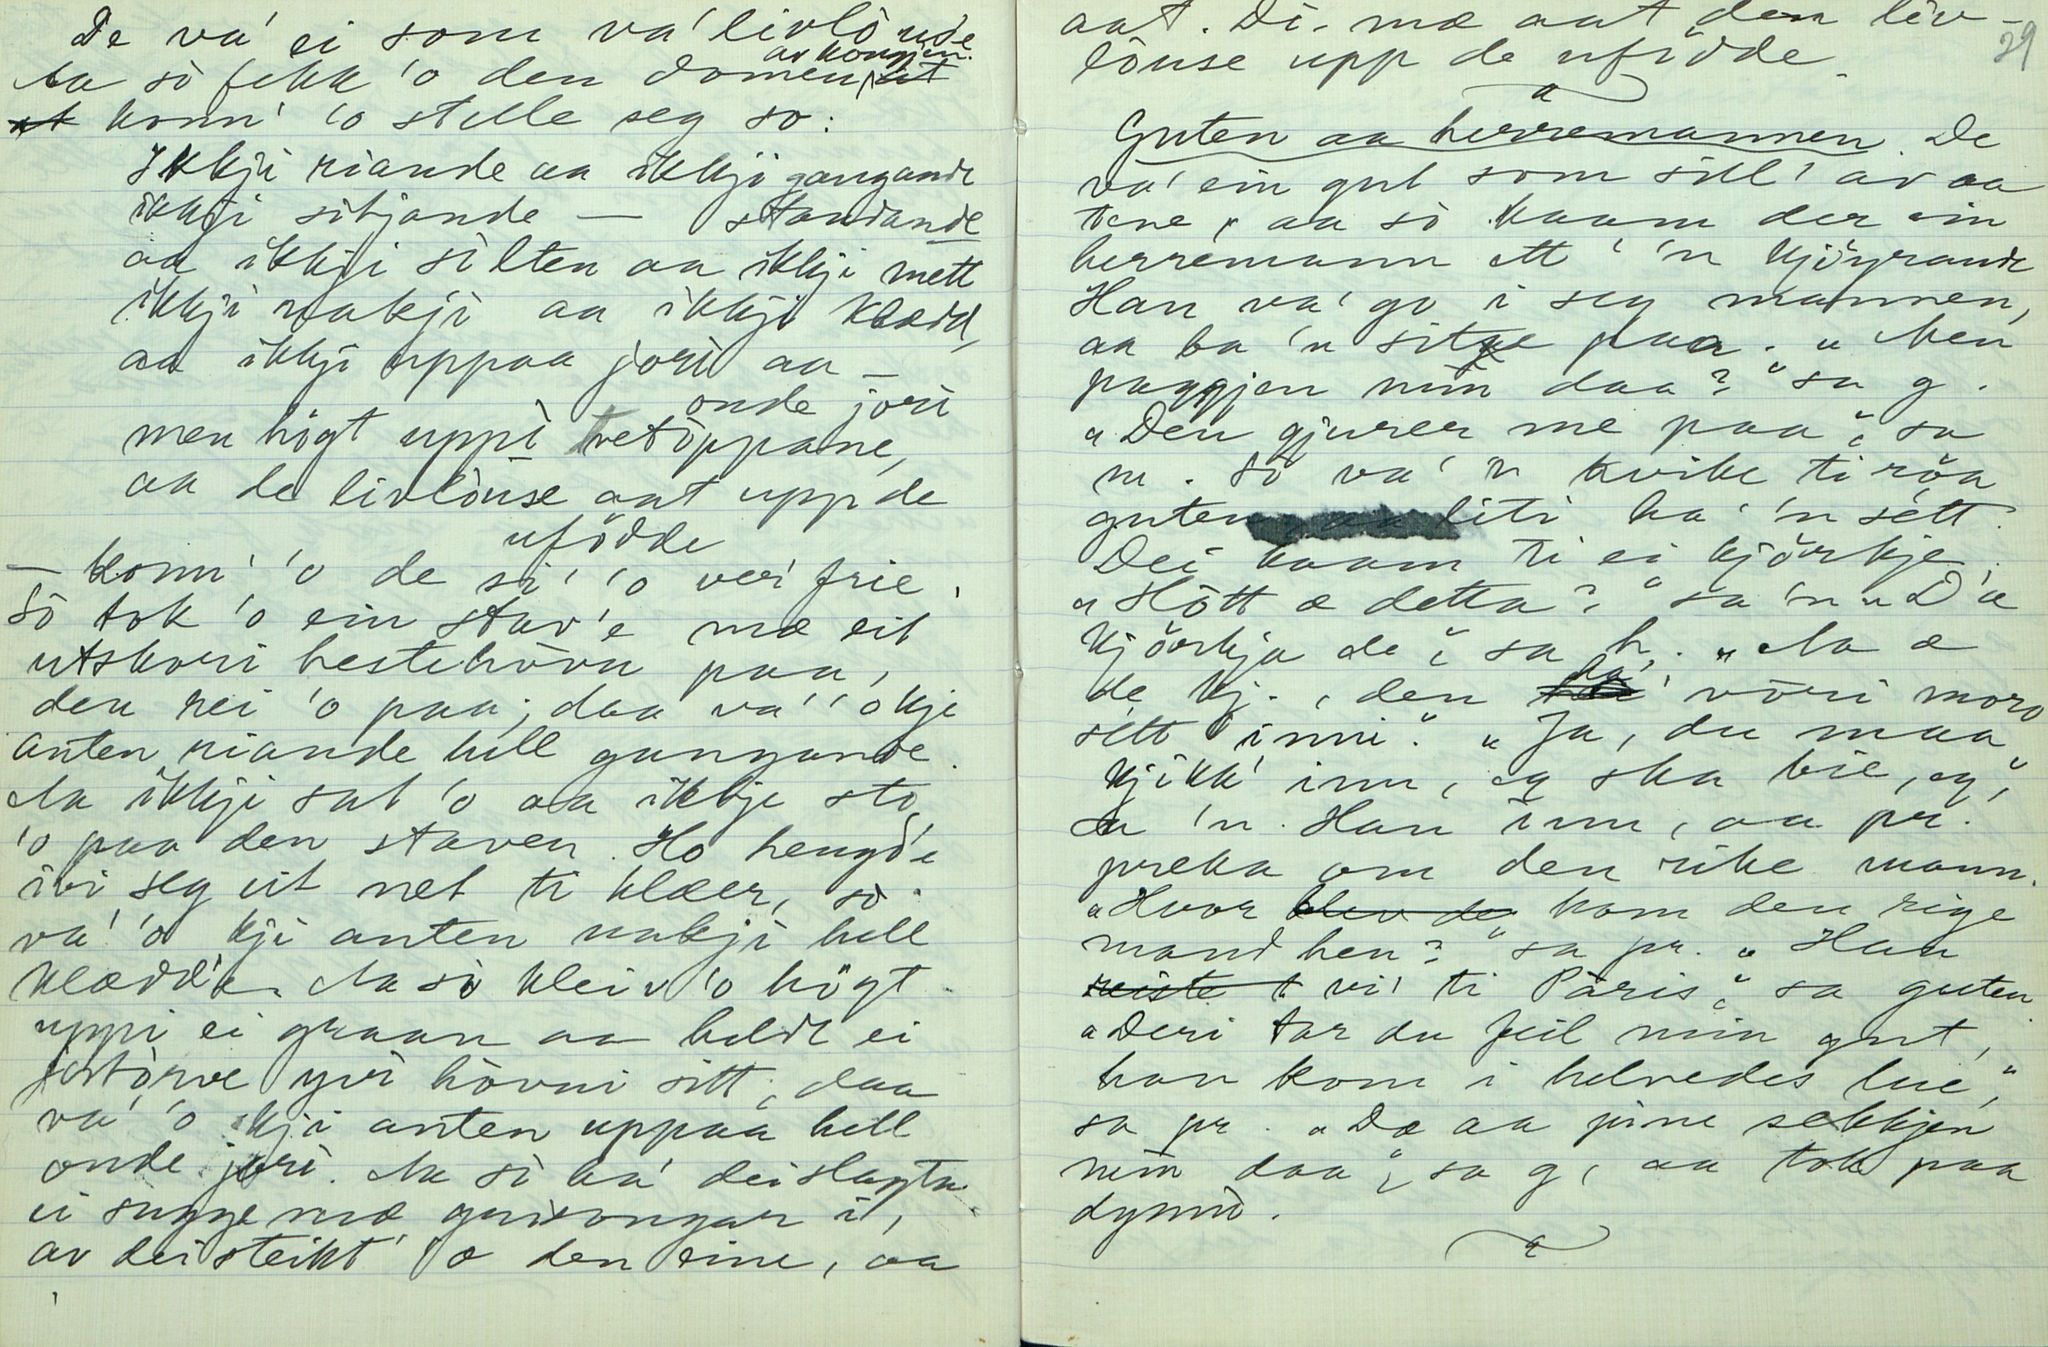 De va' ei som va' livlöuse
av kongjen.
Aa sò fekk 'o den domen, at
at konn' 'o stelle seg so:
Ikkji riande aa ikkji gangande
ikkji sitjande — standande
aa ikkji silten aa ikkji mett
ikkji nakji aa ikkji klædd,
aa ikkji uppaa jori aa —
onde jori
men högt uppi tretöppane,
aa de livlöuse aat upp de
ufödde
— konn' 'o de si' 'o ver' frie.
Sò tok 'o ein stav'e mæ eit
utskori hestehövu paa,
den rei 'o paa; daa va' 'o kje
anten riande hell gangande.
Aa ikkji sat 'o aa ikkje sto
'o paa den staven. Ho hengd'e
ivi seg eit net ti klæer, sò
va' 'o kji anten nakji hell
klædd'e. Aa sò kleiv 'o högt
uppi ei graan aa heldt ei
jortòrve yvi hövui sitt, daa
va' 'o kji anten uppaa hell
onde jori. Aa sò ha' dei slagta
ei sugge mæ grisongar i,
av dei steikt' 'o den eine, aa
29
aat. Di. mæ aat den liv-
löuse upp de ufödde.
Guten aa herremannen. De
va' ein gut som sill' av aa
tene, aa sò kaam der ein
herremann ett' 'n kjöyrande
Han va' go i seg mannen,
aa ba 'n sitje paa. "Men
paggjen min daa?" sa g.
"Den gjurer me paa", sa
m. Sò va' 'n kvike ti röa
guten, aa liti ha' 'n sétt.
Dei kaam ti ei kjörkje.
"Hött æ detta?" sa 'n. "D'æ
kjörkja de", sa h. "Aa æ
de kj., den ha' vöri moro
sétt inni." "Ja, du maa
kjikk' inn, eg ska bie, eg",
sa 'n. Han inn, aa pr.
preka om den rike mann.
"Hvor blev de kom den rige
mand hen?" sa pr. "Han
reiste t vi' ti Páris", sa guten.
"Deri tar du feil min gut,
han kom i helvedes lue,"
sa pr. "Dæ aa pine sekkjen
min daa", sa g, aa tok paa
dynni.